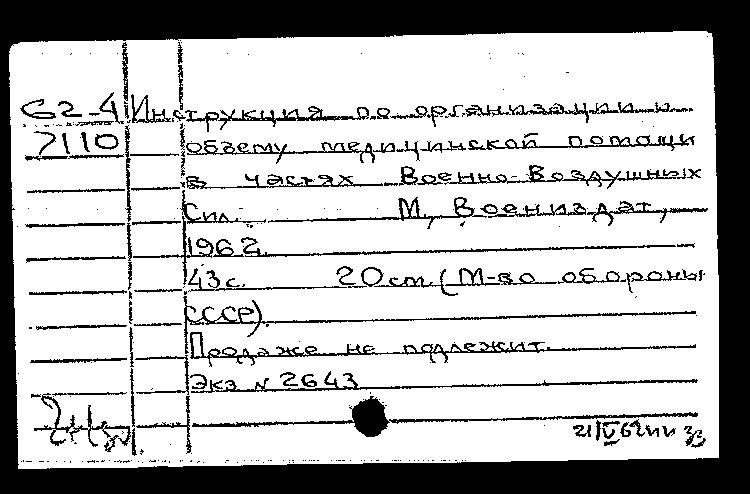 62-4 Инструкция по организации и
7110 объему медицинской помощи
в частях Военно-Воздушных
Сил. М, Воениздат,
1962.
43с. 20см. (М-во обороны
СССР).
Продаже не подлежит.
Экз № 2643
21/V 62